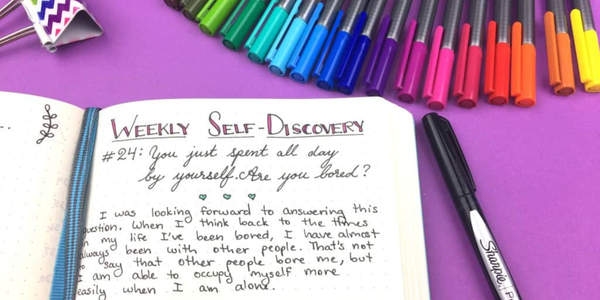 WEEKLY SELF-DISCOVERY
#24: You just spent all day
by yourself. Are you bored?
I was looking forward to answering this
question. When I think back to the times
in my life I've been bored, I have almost
always been with other people. That's not
to say that other people bore me, but
I am able to occupy myself more
easily when I am alone.
Sharpie